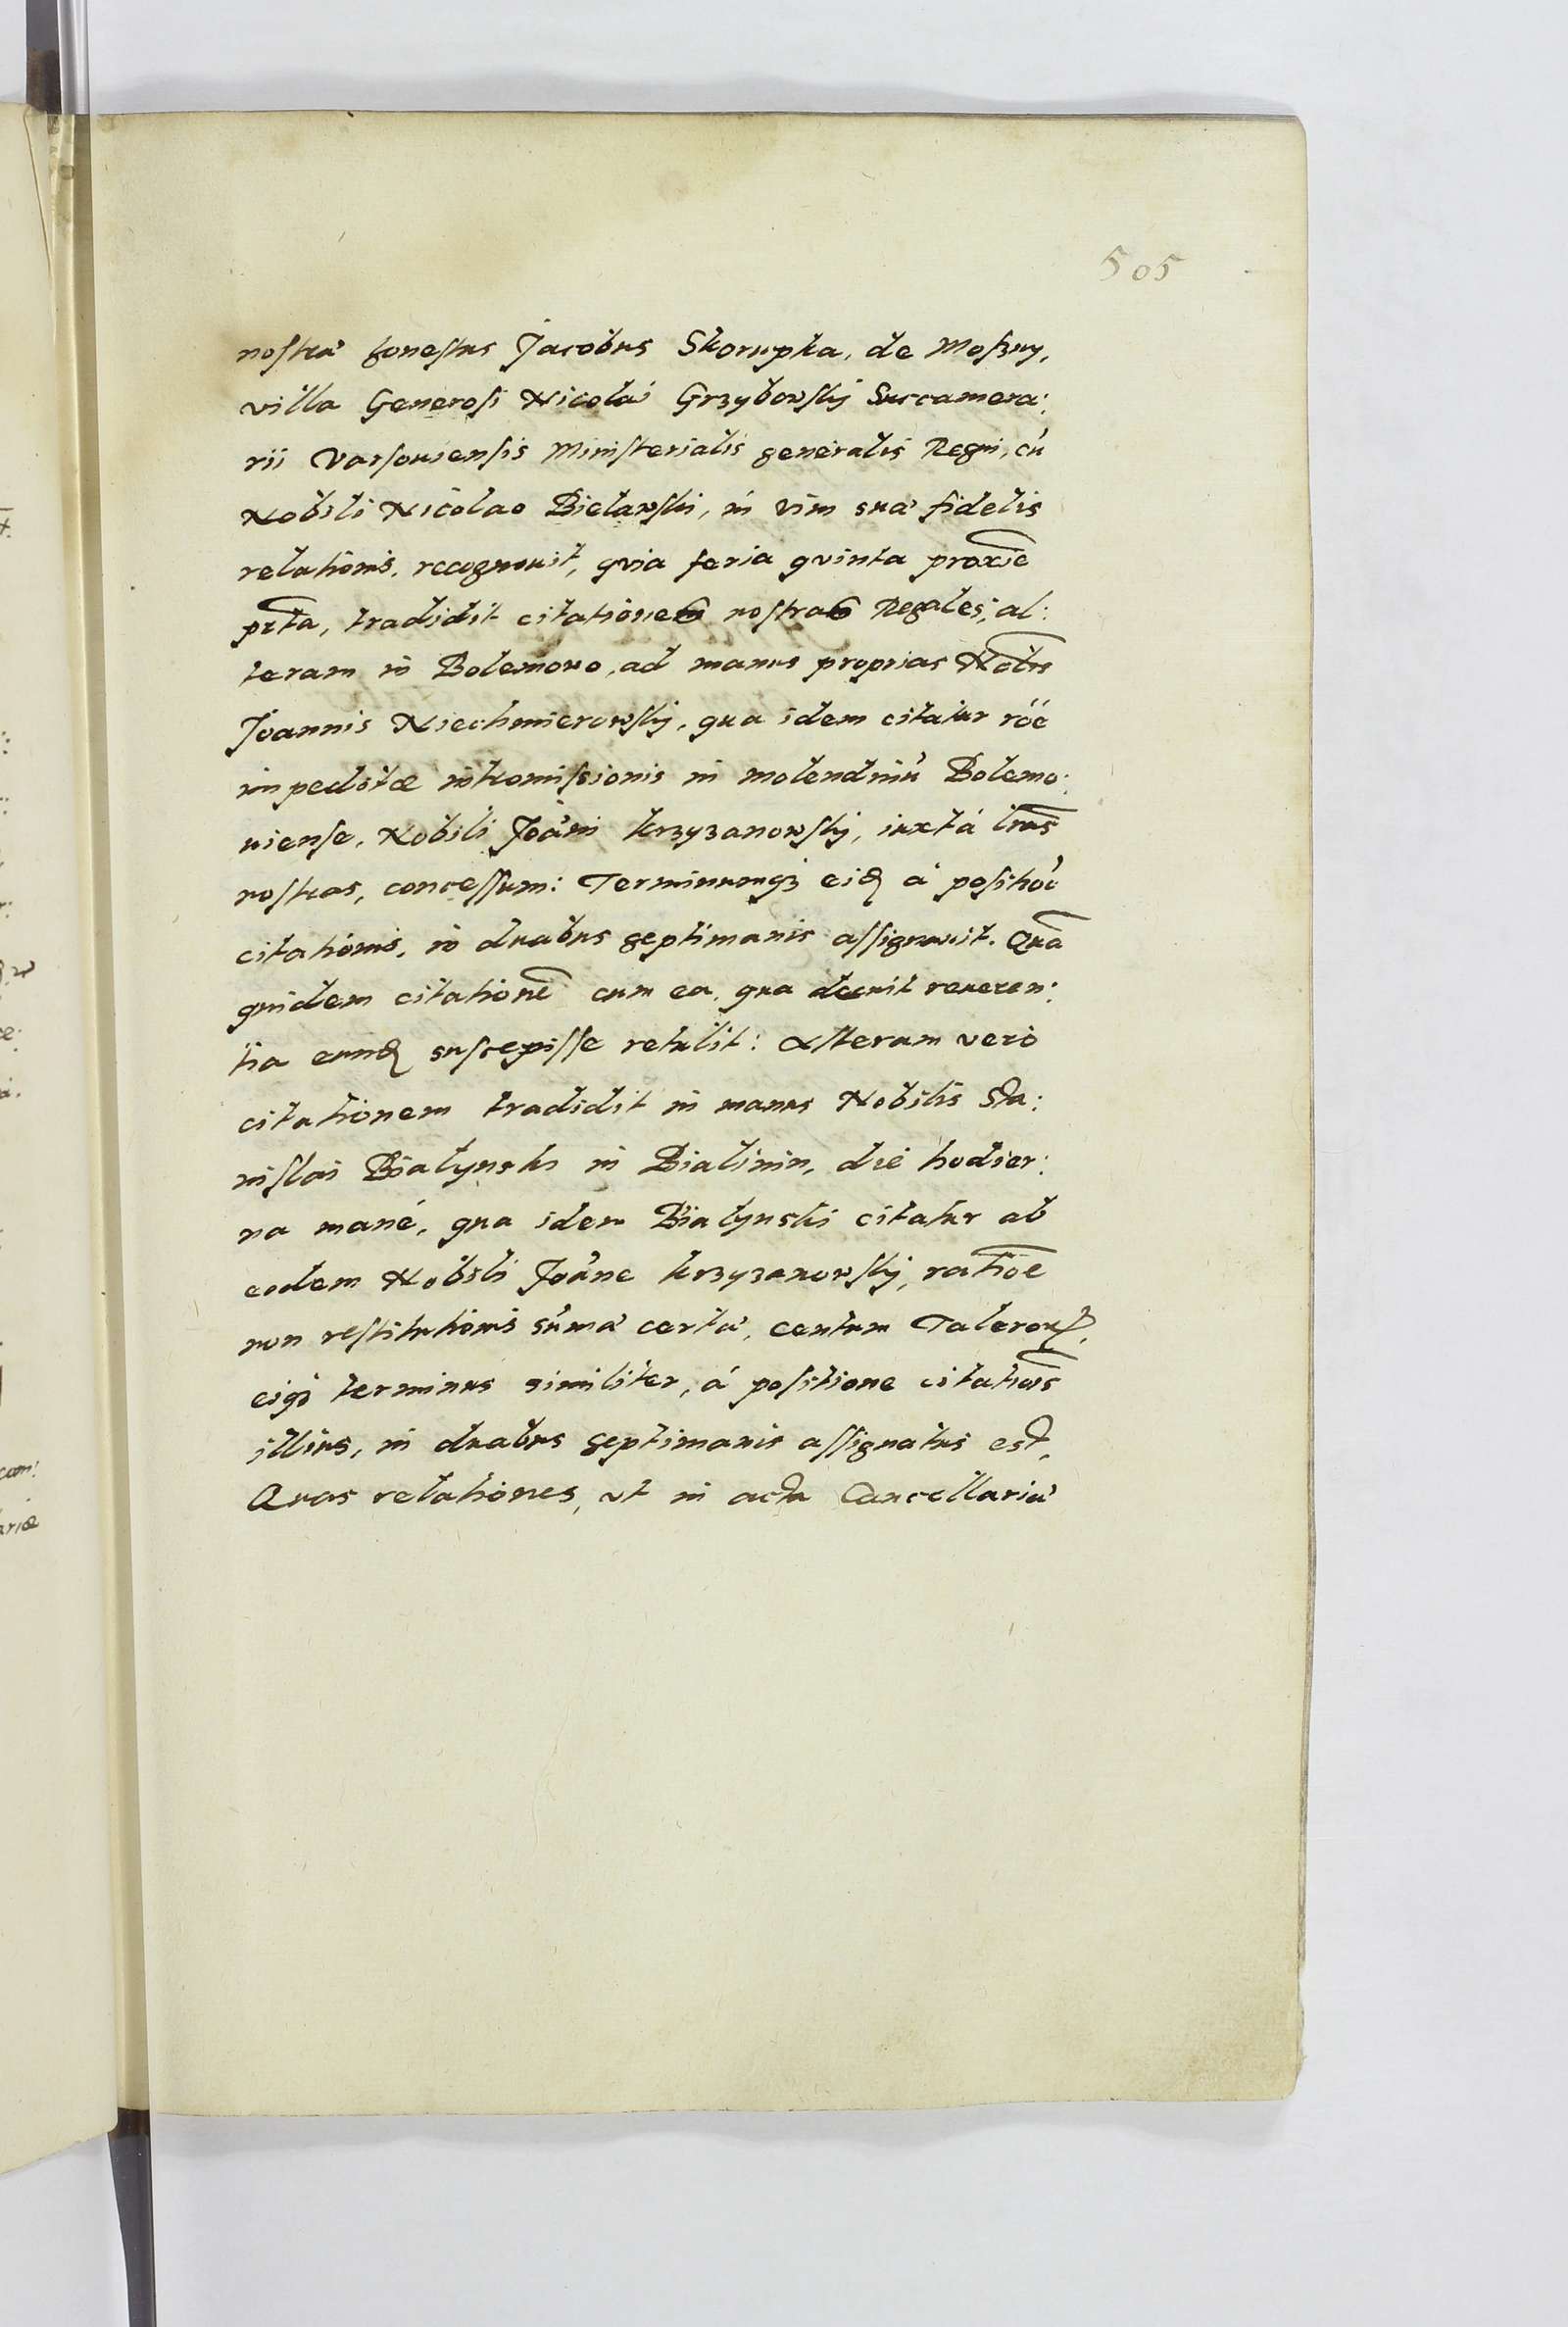 505
nostra honestus Jacobus Skorupka, de Moszny,
villa Generosi Nicolai Grzybowskÿ Succamera:
rii Varsouiensis Ministerialis generalis Regni, cū
Nobili Nicolao Bielawski, in vim suæ fidelis
relationis, recognouit, quia feria quinta proxīe
prᵗa, tradidit citationem nostram Regales, al:
teram in Bolemowo, ad manus proprias Nob̄is
Joannis Niechmierowskÿ, qua idem citatur rōe
impeditæ intromissionis in molendinū Bolemo:
uiense, Nobili Joāni Krzyzanowskÿ, iuxtá lr̄as
nostras, concessum: Terminumqꝫ eidꝫ á positiōe
citationis, in duabus septimanis assignauit. Quā
quidem citationē cum ea, qua decuit reueren:
tia eundꝫ suscepisse retulit: Alteram verò
citationem tradidit in manus Nobilis Sta:
nislai Bialynski in Bialinin, die hodier:
na mané, qua idem Bialynski citatur ab
eodem Nobili Joāne Krzyzanowskÿ, ratiōe
non restitutionis sūmæ certæ, centum Taleroꝝ,
eiqꝫ terminus similiter, á positione citatiōis
illius, in duabus septimanis assignatus est,
Quas relationes, ut in acta Cancellariæ